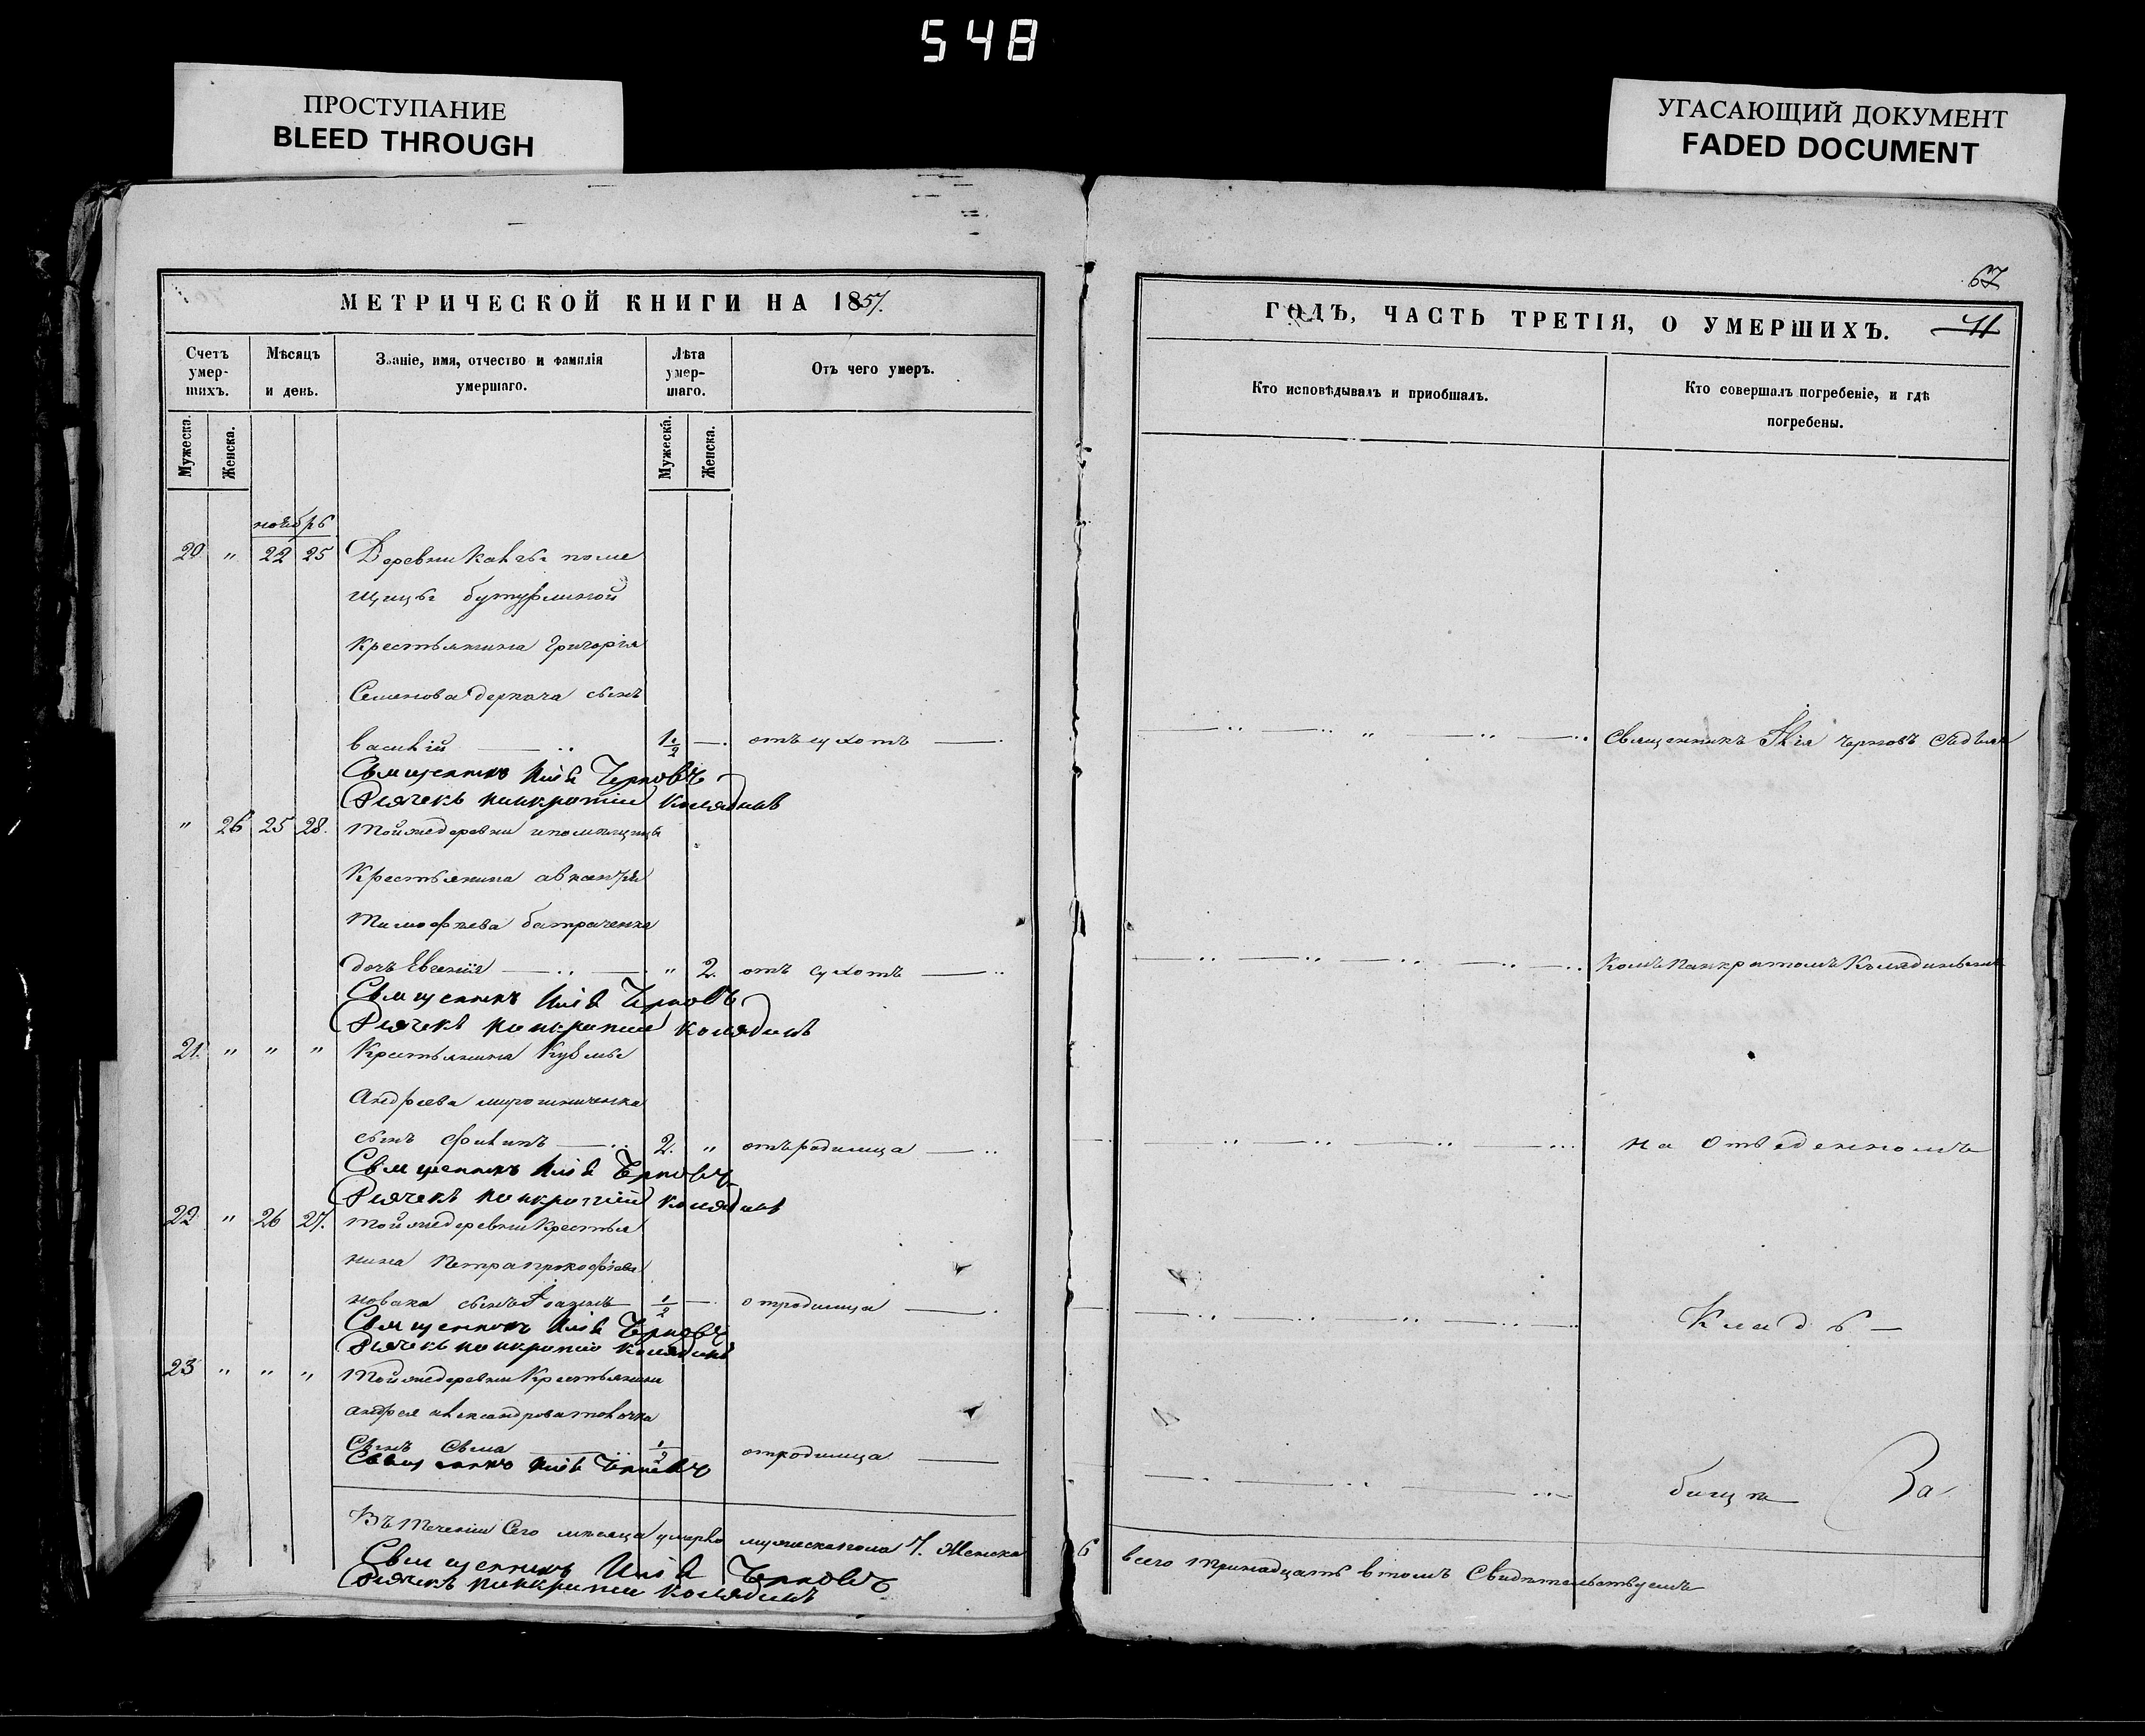 548
ПРОСТУПАНИЕ
BLEED THROUGH
УГАСАЮЩИЙ ДОКУМЕНТ
FADED DOCUMENT
67
МЕТРИЧЕСКОЙ КНИГИ НА 1857.
ГОДЪ, ЧАСТЬ ТРЕТІЯ, О УМЕРШИХЪ.
Счетъ умер-шихъ.
Мѣсяцъ и день.
Званіе, имя, отчество и фамилія умершаго.
Лѣта умер-шаго.
Отъ чего умеръ.
Кто исповѣдывалъ и пріобщалъ.
Кто совершалъ погребеніе, и гдѣ погребены.
Мужеска. Женска.
Мужеска. Женска.
ноябрь
20 " 22 25 Деревни поме
щицы бутурлиной
крестьянина григорія
Семенова деркача сынъ
василій 1/2 отъ сухотъ Священникъ Илія Черновъ
Священникъ Илія Черновъ
Дьячекъ панкратій Колядинъ
" 26 25 28. тойжедеревни ипомѣщицы
Крестьянина
Тимофѣева батраченка
дочь Евгенія " 2. отъ сухотъ комъ Панкратомъ Колядинымъ
Священникъ Илія Черновъ
Дьячекъ панкратій колядинъ
21. " " " Крестьянина Кузмы
Андреева мирошниченка
сынъ Филипъ 2. " отъ родимца на отведенномъ
Священникъ Илія Черновъ
Дьячекъ панкратій колядинъ
22 " 26 27. тойжедеревни крестья
нина Петра прокофіева
новака сынъ 1/2 отродимца Клад б
Священникъ Илія Черновъ
Дьячекъ панкратій колядинъ
23 " " " тойжедеревни Крестьянина
андрея александрова
Сынъ Сыма 1/2 отродимца бищѣ За
Священникъ Илія Черновъ
Въ теченіи Сего мѣсяца умерло мужескапола 7. Женска 6 всего тринадцать втомъ Свидѣтельствуемъ
Священникъ Илія Черновъ
Дьячекъ панкратій колядинъ